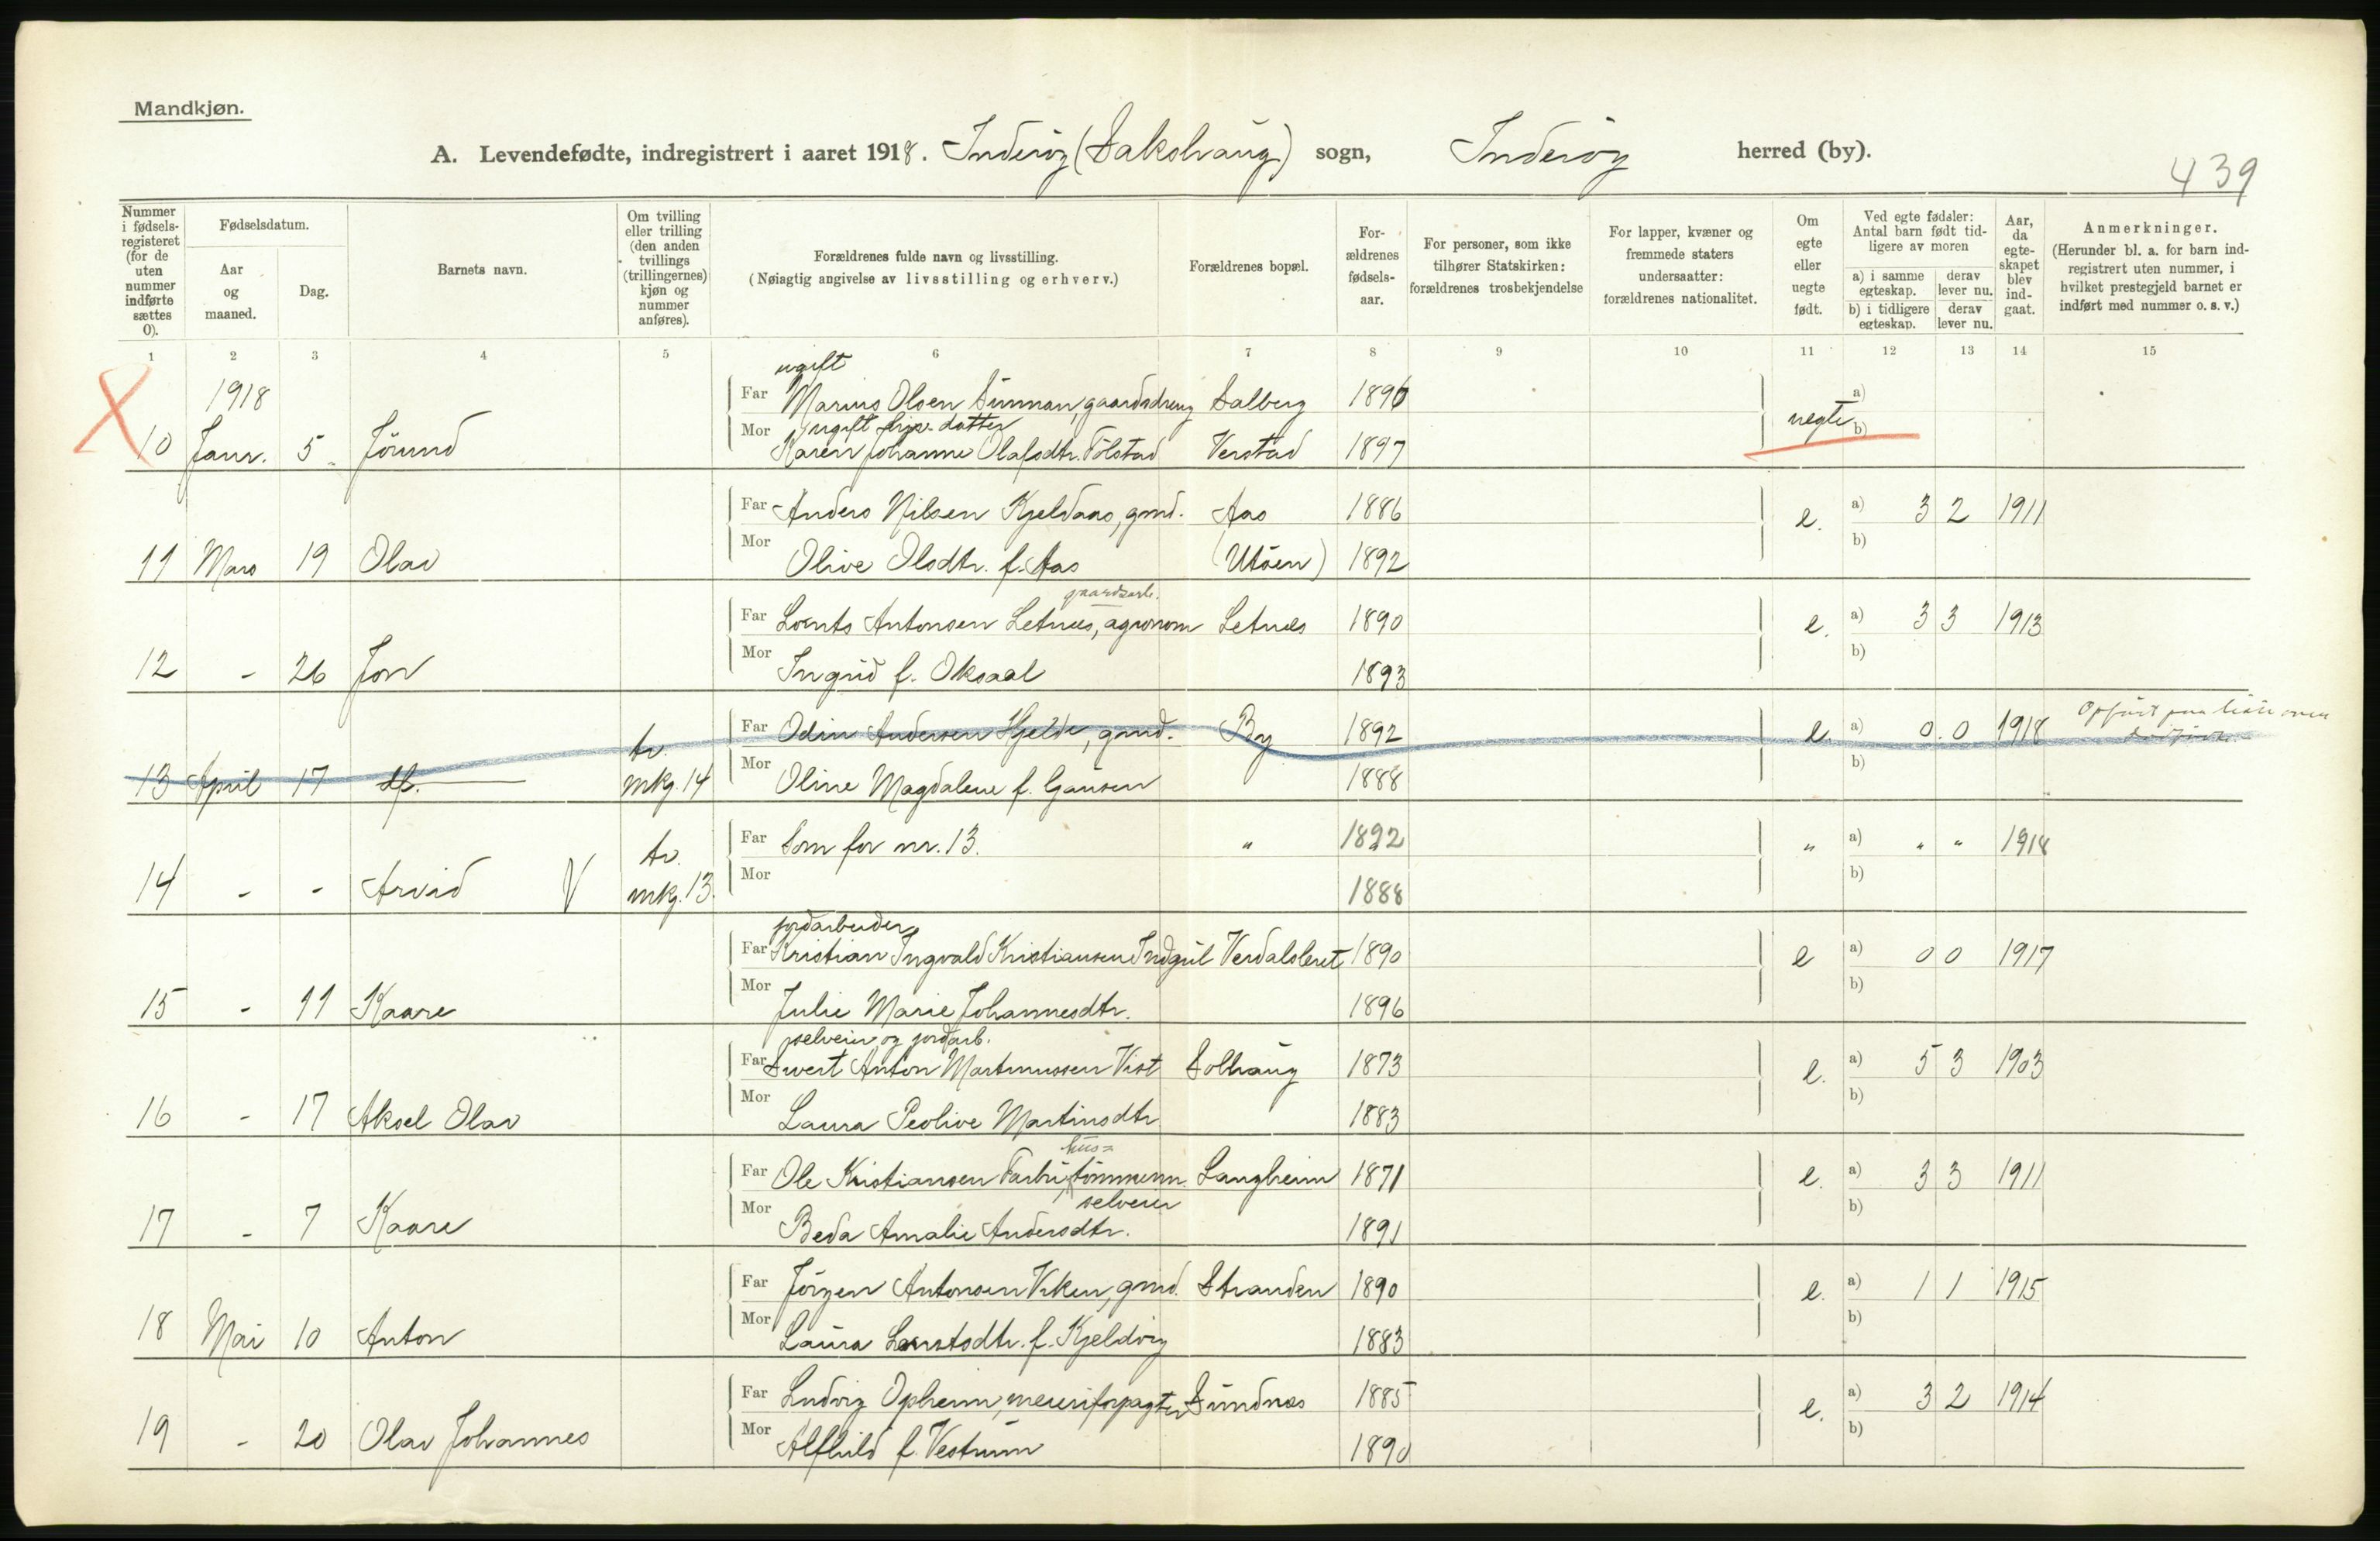 Mandkjøn.
A. Levendefødte, indregistrert i aaret 1918. Inderöy (Sakshaug) sogn, Inderöy herred (by).
439
Nummer i fødsels-registeret (for de uten nummer indførte sættes 0).
Fødselsdatum.
Aar og maaned.
Dag.
Barnets navn.
Om tvilling eller trilling (den anden tvillings (trillingernes) kjøn og nummer anføres).
Forældrenes fulde navn og livsstilling.
(Nøiagtig angivelse av livsstilling og erhverv.)
Forældrenes bopæl.
For-ældrenes fødsels-aar.
For personer, som ikke tilhører Statskirken: forældrenes trosbekjendelse
For lapper, kvæner og fremmede staters undersaatter: forældrenes nationalitet.
Om egte eller uegte født.
Ved egte fødsler: Antal barn født tid-ligere av moren
a) i samme egteskap. derav lever nu.
b) i tidligere egteskap. derav lever nu.
Aar, da egte-skapet blev ind-gaat.
Anmerkninger.
(Herunder bl. a. for barn ind-registrert uten nummer, i hvilket prestegjeld barnet er indført med nummer o. s. v.)
1 2 3 4 5 6 7 8 9 10 11 12 13 14 15
ugift
1918 Far Marius Olsen Sunnan, gaardsdreng Salberg 1896 a)
ugift datter
10 Janr. 5 Jörund Mor Karen Johanne Olafsdtr. Tölstad Verstad 1897 uegte b)
Far Anders Nilsen Kjeldaas, gmd. Aas 1886 e. a) 3 2 1911
11 Mars 19 Olav Mor Olive Olsdtr. f. Aas (Utöen) 1892 b)
gaardsarb.
Far Lornts Antonsen Letnes, agronom Letnes 1890 e. a) 3 3 1913
12 - 26 Jon Mor Ingrid f. Oksaal 1893 b)
Opfört paa listen over
Far Odin Andersen Hjelde, gmd. By 1892 e. a) 0. 0 1918 dödfödte
13 April 17 df. tv. mkj. 14 Mor Oline Magdalene f. Gausen 1888 b)
Far Som for nr. 13. " 1892 " a) " " 1918
14 - - Arvid V tv. mkj. 13. Mor 1888 b)
jordarbeider
Far Kristian Ingvald Kristiansen Indgul Verdalsleret 1890 e a) 0 0 1917
15 - 11 Kaare Mor Julie Marie Johannesdtr. 1896 b)
selveier og jordarb.
Far Sivert Anton Martinussen Vist Solhaug 1873 e. a) 5 3 1903
16 - 17 Aksel Olav Mor Laura Peolive Martinsdtr 1883 b)
hus=
Far Ole Kristiansen tömmerm. Langheim 1871 e. a) 3 3 1911
selveier
17 - 7 Kaare Mor Beda Amalie Andersdtr. 1891 b)
Far Jörgen Antonsen Viken, gmd. Stranden 1890 e. a) 1 1 1915
18 Mai 10 Anton Mor Laura Lorntsdtr. f. Kjeldvig 1883 b)
Far Ludvig Opheim, meieriforpagter Sundnes 1885 e. a) 3 2 1914
19 - 20 Olav Johannes Mor Alfhild f. Vestrum 1890 b)